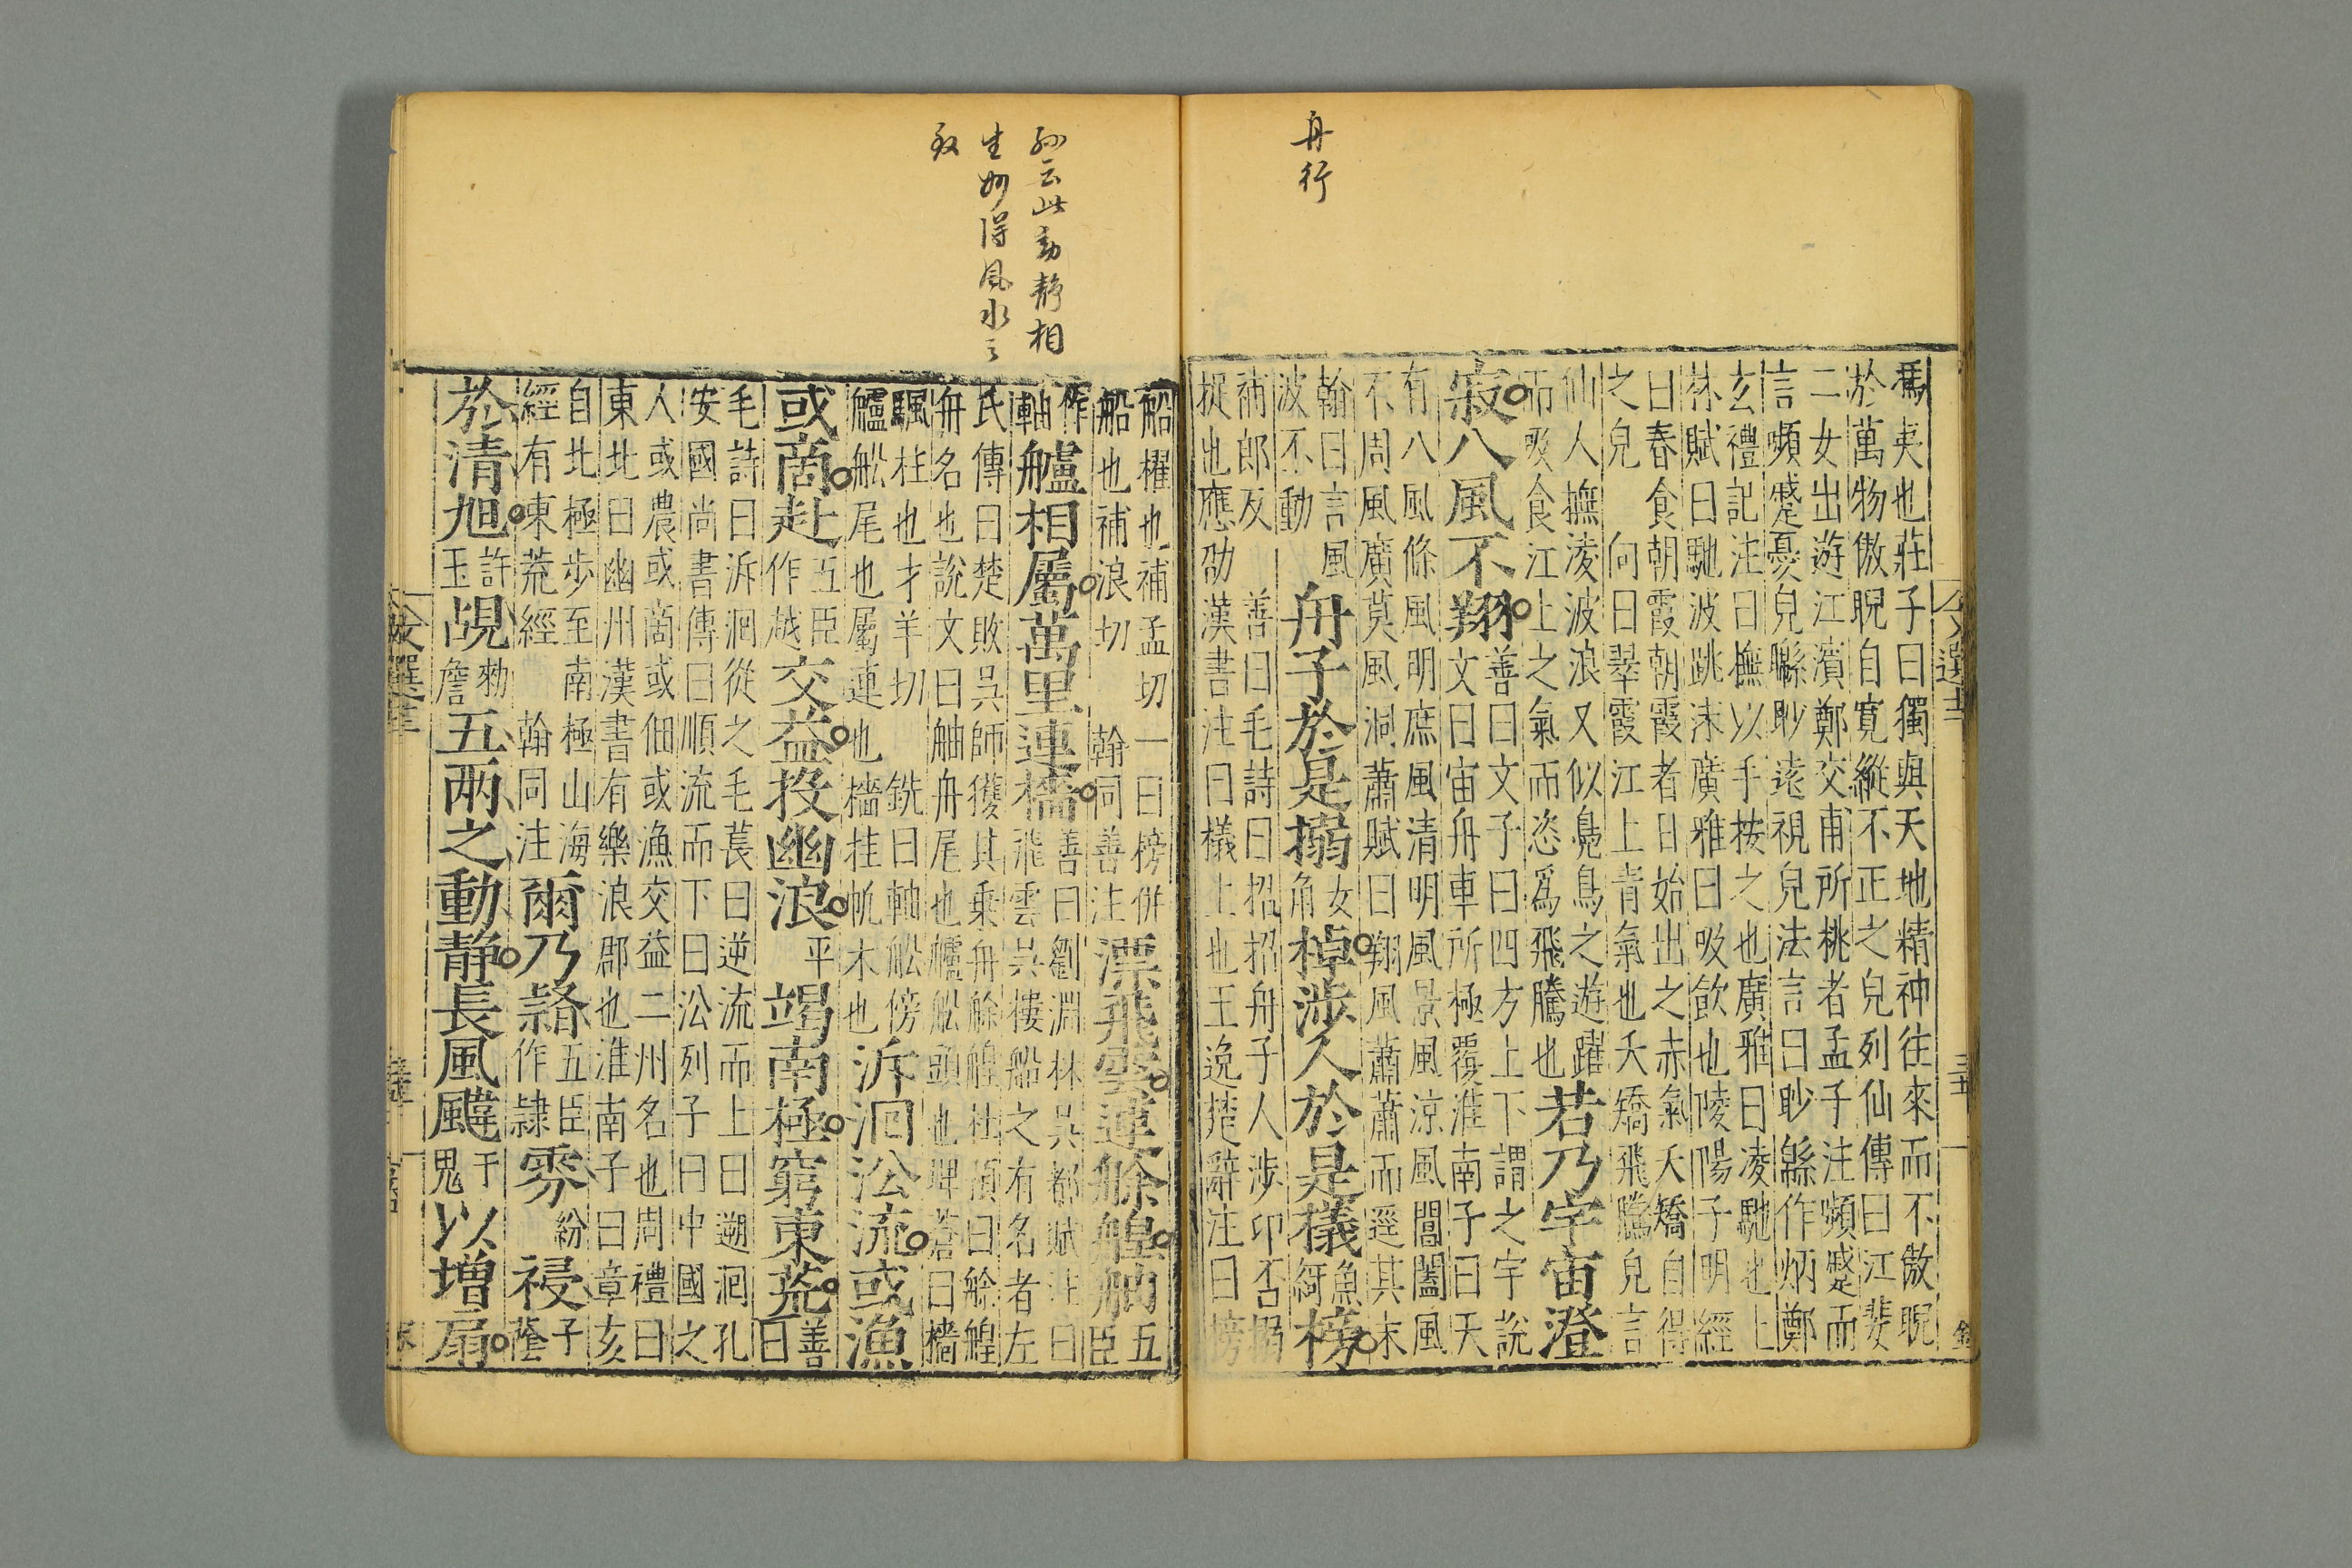 舟行
馮夷也莊子曰獨與天地精神往來而不傲睨
於萬物傲睨自寬縱不正之皃列仙傳曰江斐
二女出遊江濱鄭交甫所桃者孟子注嚬蹙而
言嚬蹙憂皃聯眇遠視皃法言曰眇緜作炳鄭
玄禮記注曰撫以手按之也廣雅曰凌馳也上
林賦曰馳波跳沫廣雅曰吸飲也陵陽子明經
曰春食朝霞朝霞者日始出之赤氣夭矯自得
之皃 向曰翠霞江上青氣也夭矯飛騰皃言
仙人撫凌波浪又似鳧鳥之遊躍
而吸食江上之氣而恣爲飛騰也
若乃宇宙澄
寂八風不翔
善曰文子曰四方上下謂之宇說
文曰宙舟車所極覆淮南子曰天
有八風條風明庶風清明風景風涼風閶闔風
不周風廣莫風洞蕭賦曰翔風蕭蕭而逕其末
翰曰言風
波不動
舟子於是搦
女
角
棹涉人於是檥
魚
綺
榜
善曰毛詩曰招招舟子人涉卬否搦
補郎反
捉也應劭漢書注曰檥上也王逸楚辭注曰榜
孫云此動静相
生妙得風水之
致
船櫂也補孟切一曰榜併
船也補浪切 翰同善注
漂飛雲運艅艎舳
五
臣
作
軸
艫相屬萬里連檣
善曰劉淵林吳都賦注曰
飛雲吳樓船之有名者左
氏傳曰楚敗吳師獲其乘舟艅艎杜預曰艅艎
舟名也說文曰舳舟尾也艫舩頭也埤蒼曰檣
颿柱也才羊切 銑曰軸舩傍
艫舩尾也屬連也檣挂帆木也
泝洄㳂流或漁
或啇赴
五臣
作越
交益投幽浪
平
竭南極窮東荒
善
曰
毛詩曰泝洄從之毛萇曰逆流而上曰遡洄孔
安國尚書傳曰順流而下曰㳂列子曰中國之
人或農或啇或佃或漁交益二州名也周禮曰
東北曰幽州漢書有樂浪郡也淮南子曰章亥
自北極步至南極山海
經有東荒經 翰同注
爾乃䨴
五臣
作隷
雰
紛
祲
子
蔭
於清旭
許
玉
覘
勑
詹
五兩之動静長風颹
于
鬼
以增扇